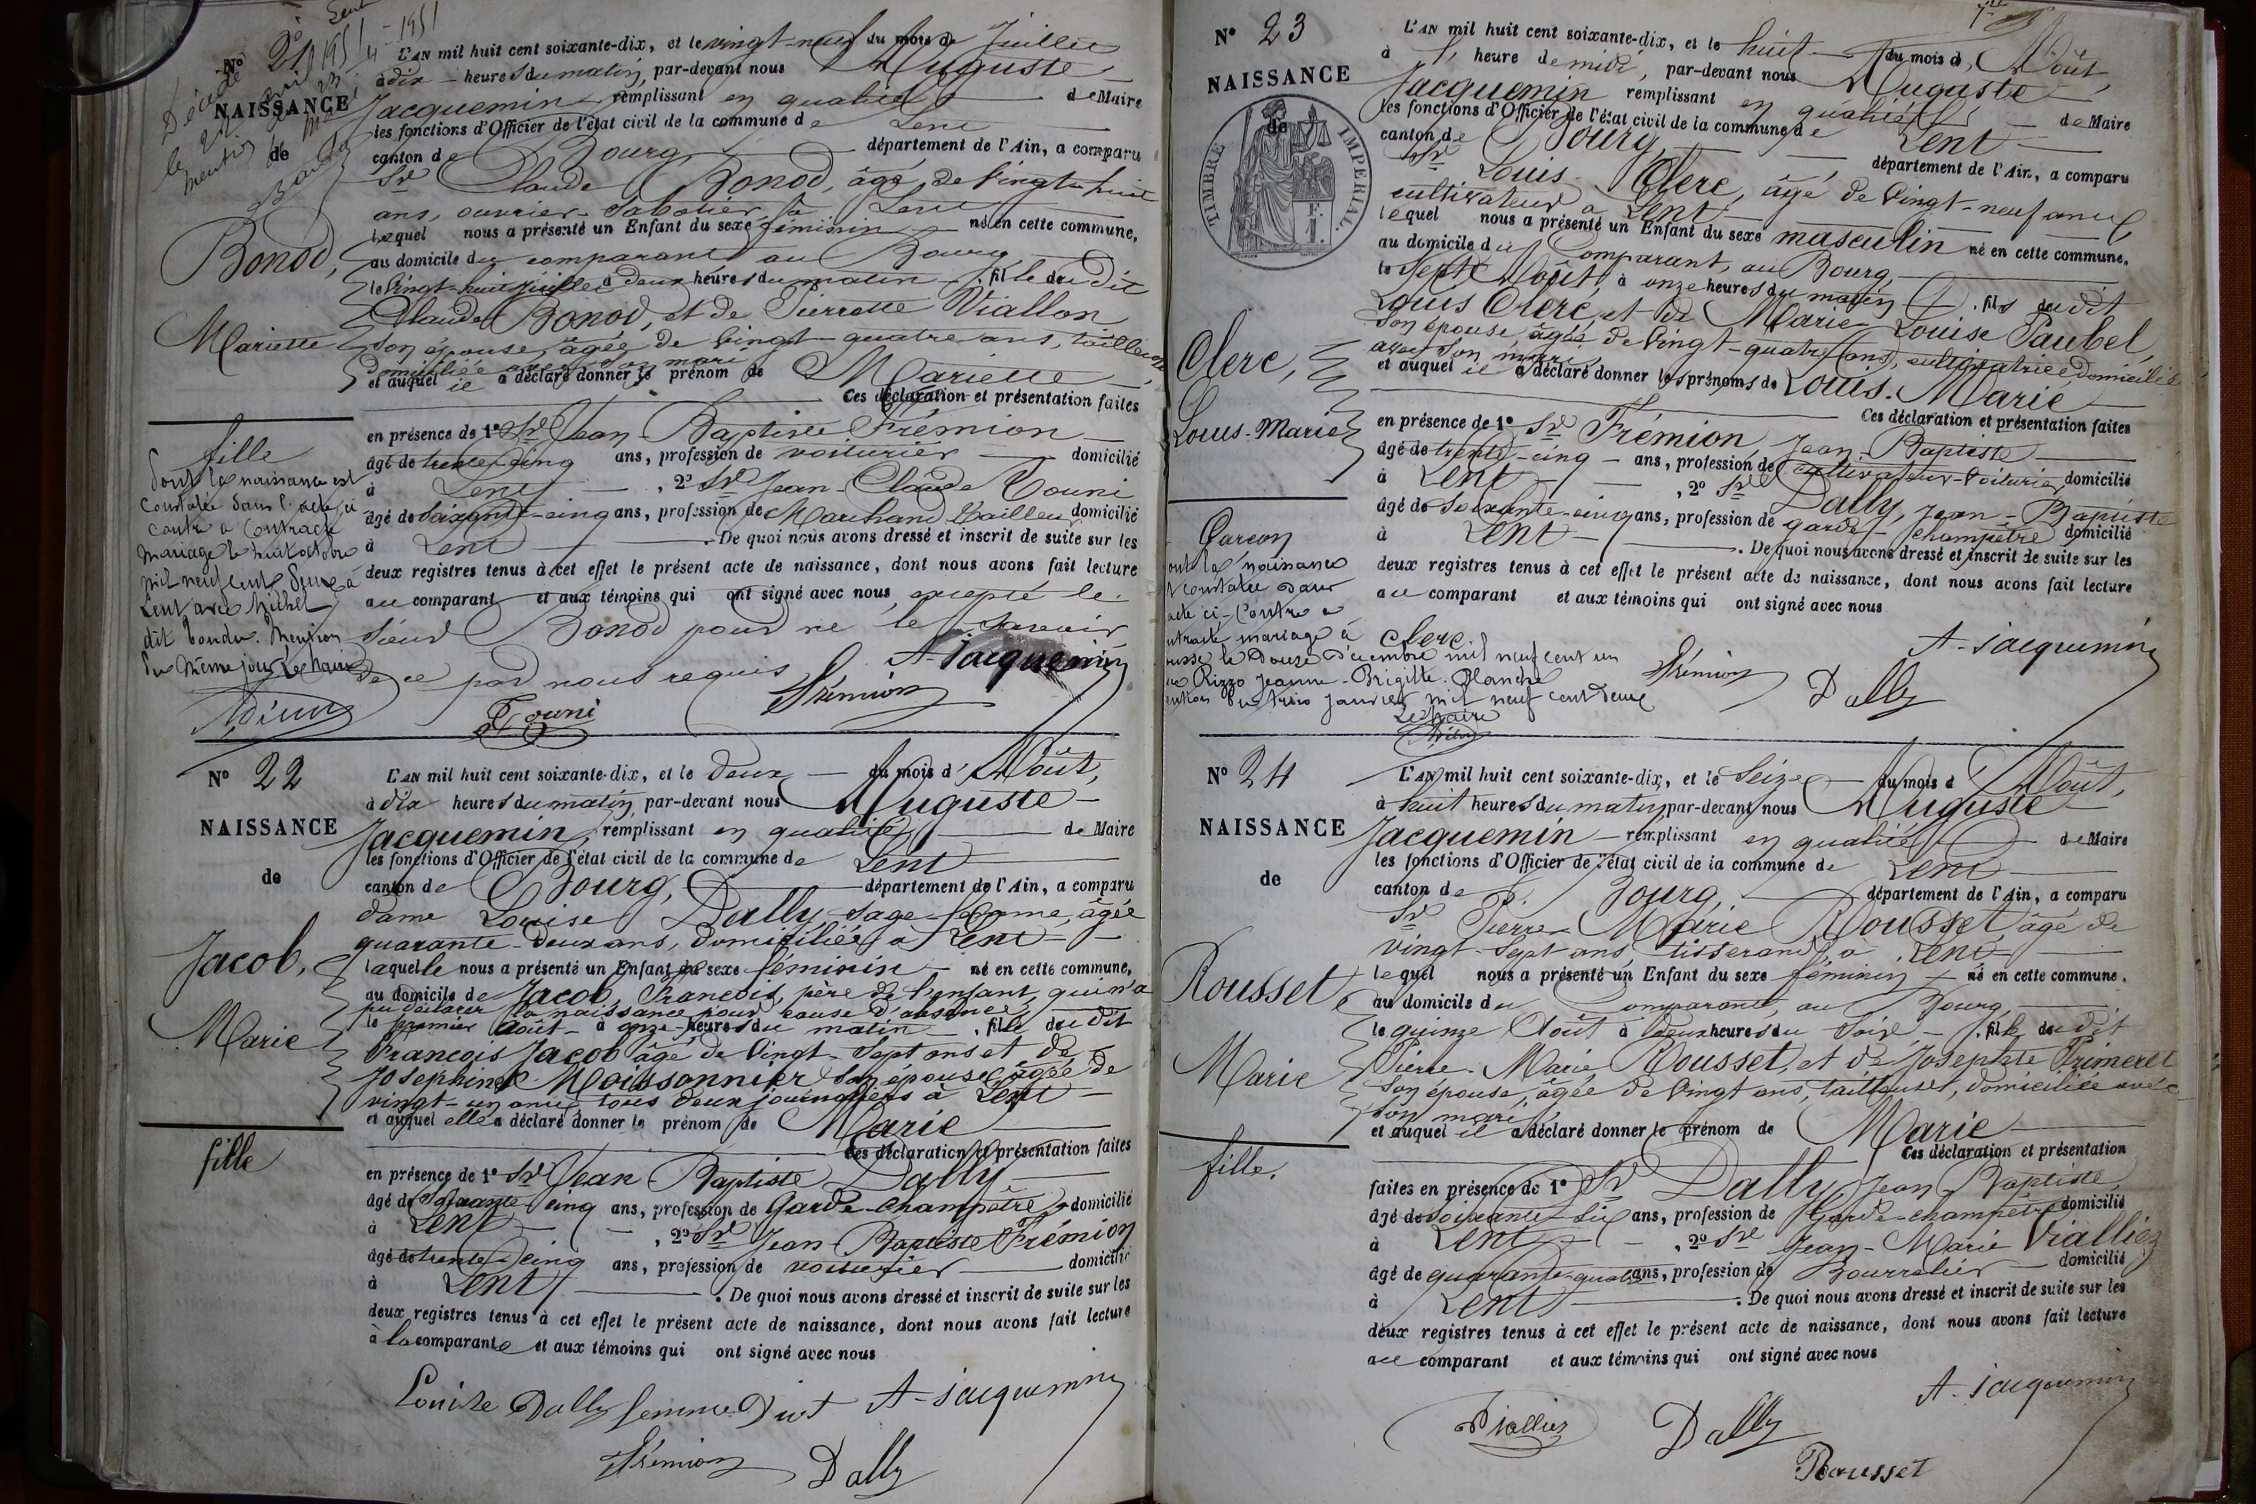 N° 21
NAISSANCE
de
Bonod,
Mariette
fille
dont la naissance est
constatée dans l'acte ci
contre a contracté
mariage le huit octobre
mil neuf cent douze à
Lent avec Michel
dit Mention
du même jour Le Maire
Décédée
le
mention
L'AN mil huit cent soixante-dix, et le vingt-neuf du mois de Juillet
à dix heures du matin, par-devant nous Auguste
Jacquemin remplissant en qualité de Maire
les fonctions d'Officier de l'état civil de la commune de Lent
canton de Bourg département de l'Ain, a comparu
Sr Claude Bonod, âgé de vingt-huit
ans, ouvrier-sabotier à Lent
lequel nous a présenté un Enfant du sexe féminin né en cette commune,
au domicile du comparant au Bourg
le vingt-huit juillet à deux heures du matin, fille du dit
Claude Bonod, et de Pierrette Viallon
son épouse, âgée de vingt-quatre ans, tailleuse,
domiciliée avec son mari
et auquel il a déclaré donner le prénom de Mariette
Ces déclaration et présentation faites
en présence de 1° Sr Jean-Baptiste Frémion
âgé de trente-cinq ans, profession de voiturier domicilié
à Lent, 2° Sr Jean-Claude Touni
âgé de soixante-cinq ans, profession de Marchand Tailleur domicilié
à Lent. De quoi nous avons dressé et inscrit de suite sur les
deux registres tenus à cet effet le présent acte de naissance, dont nous avons fait lecture
au comparant et aux témoins qui ont signé avec nous, excepté le
sieur Bonod pour ne le savoir
de ce par nous requis
A. Jacquemin
Frémion
Touni
N° 22
NAISSANCE
de
Jacob,
Marie
fille
L'AN mil huit cent soixante-dix, et le deux du mois d'Août,
à dix heures du matin, par-devant nous Auguste
Jacquemin, remplissant en qualité de Maire
les fonctions d'Officier de l'état civil de la commune de Lent
canton de Bourg, département de l'Ain, a comparu
dame Louise Dally, sage-femme, âgée
quarante-deux ans, domiciliée à Lent
laquelle nous a présenté un Enfant du sexe féminin né en cette commune,
au domicile de Jacob, François, père de l'enfant, qui n'a
pu déclarer la naissance pour cause d'absence,
le premier Août à onze heures du matin, fille du dit
François Jacob âgé de vingt-sept ans et de
Joséphine Moissonnier son épouse âgée de
vingt-un ans tous deux journaliers à Lent
et auquel elle a déclaré donner le prénom de Marie
Ces déclaration et présentation faites
en présence de 1° Sr Jean Baptiste Dally
âgé de soixante cinq ans, profession de Garde-champêtre, domicilié
à Lent, 2° Sr Jean-Baptiste Frémion
âgé de trente-cinq ans, profession de voiturier domicilié
à Lent. De quoi nous avons dressé et inscrit de suite sur les
deux registres tenus à cet effet le présent acte de naissance, dont nous avons fait lecture
à la comparante et aux témoins qui ont signé avec nous
Louise Dally femme A. Jacquemin
Frémion Dally
N° 23
NAISSANCE
de
TIMBRE IMPERIAL.
Clerc,
Louis-Marie
Garçon
dont la naissance
est constatée dans
acte ci-contre a
contracté mariage à
le douze décembre mil neuf cent un
Rizzo Jeanne-Brigitte-Blanche
mention du trois janvier mil neuf cent deux
Le Maire
L'AN mil huit cent soixante-dix, et le huit du mois d'Août,
à heure de midi, par-devant nous Auguste
Jacquemin remplissant en qualité de Maire
les fonctions d'Officier de l'état civil de la commune de Lent
canton de Bourg, département de l'Ain, a comparu
Sr Louis Clerc, âgé de vingt-neuf ans,
cultivateur à Lent
lequel nous a présenté un Enfant du sexe masculin né en cette commune,
au domicile du comparant, au Bourg
le sept Août, à onze heures du matin, fils du dit
Louis Clerc, et de Marie-Louise Paubel,
son épouse, âgée de vingt-quatre ans, cultivatrice, domiciliée
avec son mari,
et auquel il a déclaré donner les prénoms de Louis-Marie
Ces déclaration et présentation faites
en présence de 1° Sr Frémion, Jean-Baptiste
âgé de trente-cinq ans, profession de cultivateur-voiturier domicilié
à Lent, 2° Sr Dally, Jean-Baptiste
âgé de soixante-cinq ans, profession de garde-champêtre domicilié
à Lent. De quoi nous avons dressé et inscrit de suite sur les
deux registres tenus à cet effet le présent acte de naissance, dont nous avons fait lecture
au comparant et aux témoins qui ont signé avec nous
Clerc
Frémion
A. Jacquemin
Dally
N° 24
NAISSANCE
de
Rousset
Marie
fille.
L'AN mil huit cent soixante-dix, et le seize du mois d'Août,
à huit heures du matin, par-devant nous Auguste
Jacquemin remplissant en qualité de Maire
les fonctions d'Officier de l'état civil de la commune de Lent
canton de Bourg, département de l'Ain, a comparu
Sr Pierre-Marie Rousset âgé de
vingt-sept ans, tisserand, à Lent
lequel nous a présenté un Enfant du sexe féminin né en cette commune,
au domicile du comparant, au Bourg
le quinze Août à deux heures du soir, fille du dit
Pierre-Marie Rousset, et de Josephte Primeret
son épouse, âgée de vingt ans, tailleuse, domiciliée avec
son mari
et auquel il a déclaré donner le prénom de Marie
Ces déclaration et présentation
faites en présence de 1° Sr Dally, Jean-Baptiste,
âgé de soixante-six ans, profession de Garde-champêtre domicilié
à Lent, 2° Sr Jean-Marie Vialliez
âgé de quarante-quatre ans, profession de Bourrelier domicilié
à Lent. De quoi nous avons dressé et inscrit de suite sur les
deux registres tenus à cet effet le présent acte de naissance, dont nous avons fait lecture
au comparant et aux témoins qui ont signé avec nous
A. Jacquemin
Vialliez Dally
Rousset